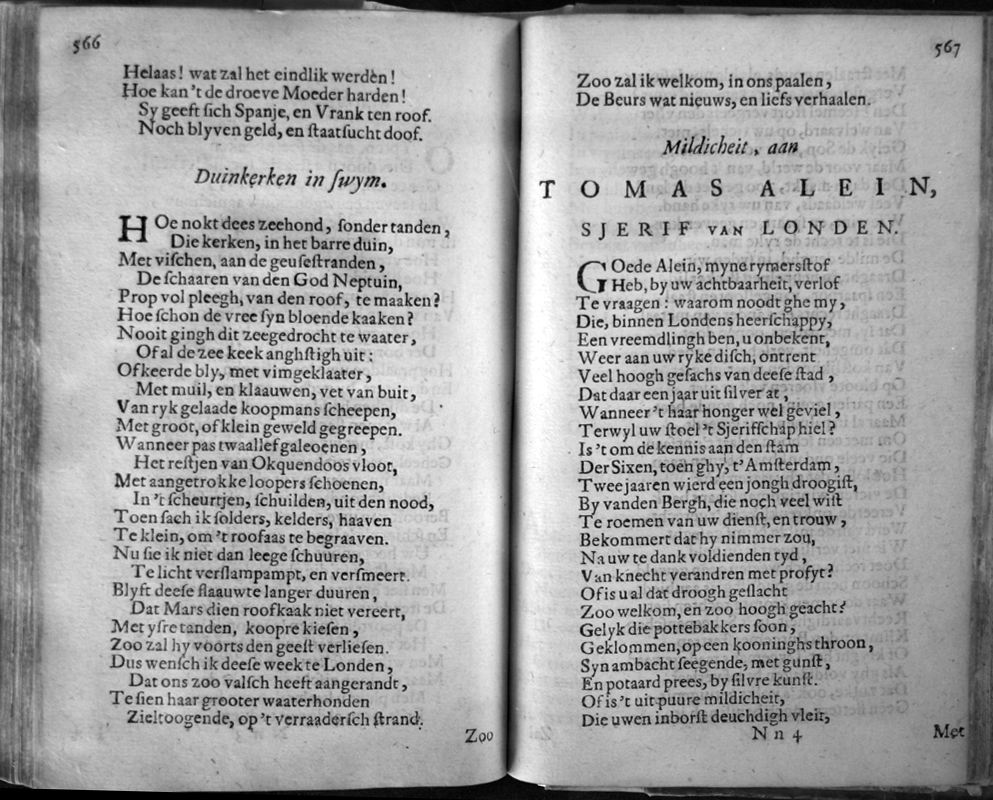 566
Helaas! wat zal het eindlik werden!
Hoe kan 't de droeve Moeder harden!
Sy geeft ſich Spanje, en Vrank ten roof.
Noch blyven geld, en ſtaatſucht doof.
Duinkerken in ſwym.
HOe nokt dees zeehond, ſonder tanden,
Die kerken, in het barre duin,
Met viſchen, aan de geuſeſtranden,
De ſchaaren van den God Neptuin,
Prop vol pleegh, van den roof, te maaken?
Hoe ſchon de vree ſyn bloende kaaken?
Nooit gingh dit zeegedrocht te waater,
Of al de zee keek anghſtigh uit:
Of keerde bly, met vimgeklaater,
Met muil, en klaauwen, vet van buit,
Van ryk gelaade koopmans ſcheepen,
Met groot, of klein geweld gegreepen.
Wanneer pas twaallef galeoenen,
Het reſtjen van Okquendoos vloot,
Met aangetrokke loopers ſchoenen,
In 't ſcheurtjen, ſchuilden, uit den nood,
Toen ſach ik ſolders, kelders, haaven
Te klein, om 't roofaas te begraaven.
Nu ſie ik niet dan leege ſchuuren,
Te licht verſlampampt, en verſmeert.
Blyft deeſe flaauwte langer duuren,
Dat Mars dien roofkaak niet vereert,
Met yſre tanden, koopre kieſen,
Zoo zal hy voorts den geeſt verlieſen.
Dus wenſch ik deeſe week te Londen,
Dat ons zoo valſch heeft aangerandt,
Te ſien haar grooter waaterhonden
Zieltoogende, op 't verraaderſch ſtrand.
Zoo
567
Zoo zal ik welkom, in ons paalen,
De Beurs wat nieuws, en liefs verhaalen.
Mildicheit, aan
TOMAS ALEIN,
SJERIF VAN LONDEN.
GOede Alein, myne rymersſtof
Heb, by uw achtbaarheit, verlof
Te vraagen: waarom noodt ghe my,
Die, binnen Londens heerſchappy,
Een vreemdlingh ben, u onbekent,
Weer aan uw ryke diſch, ontrent
Veel hoogh geſachs van deeſe ſtad,
Dat daar een jaar uit ſilver at,
Wanneer 't haar honger wel geviel,
Terwyl uw ſtoel 't Sjerifſchap hiel?
Is 't om de kennis aan den ſtam
Der Sixen, toen ghy, t'Amſterdam,
Twee jaaren wierd een jongh droogiſt,
By vanden Bergh, die noch veel wiſt
Te roemen van uw dienſt, en trouw,
Bekommert dat hy nimmer zou,
Na uw te dank voldienden tyd,
Van knecht verandren met profyt?
Of is u al dat droogh geſlacht
Zoo welkom, en zoo hoogh geacht?
Gelyk die pottebakkers ſoon,
Geklommen, op een kooninghs throon,
Syn ambacht ſeegende, met gunſt,
En potaard prees, by ſilvre kunſt.
Of is 't uit puure mildicheit,
Die uwen inborſt deuchdigh vleit,
Nn 4
Met